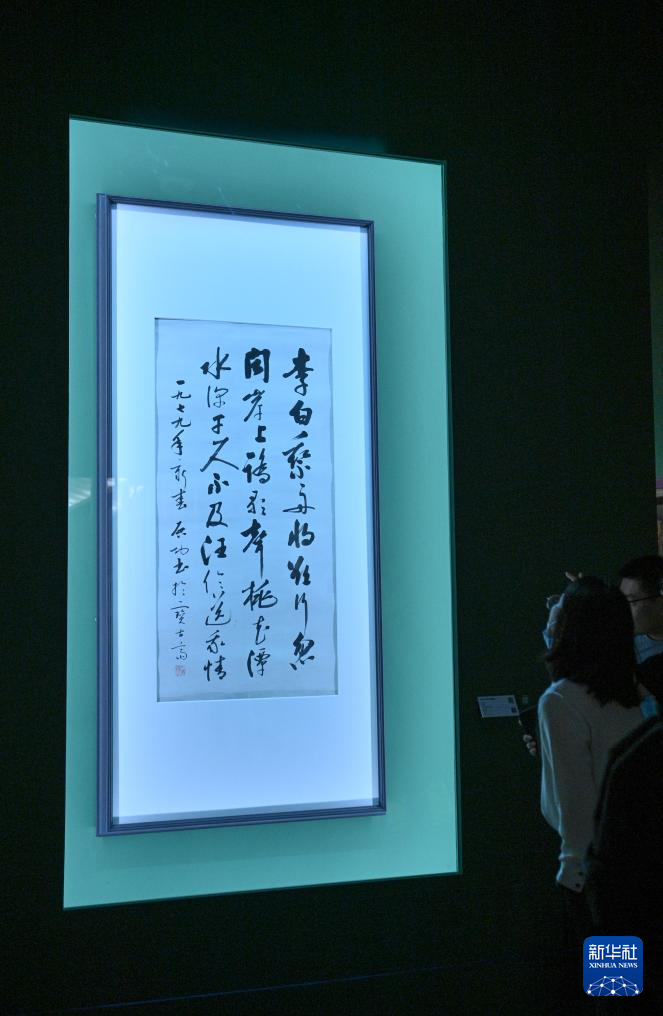 李白乘舟将欲行忽
闻岸上踏歌声桃花潭
水深千尺不及汪伦送我情
一九七九年新春 启功书於宝古斋
新华社
XINHUA NEWS